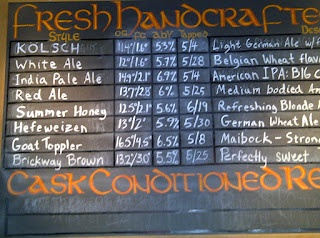 FRESH HANDCRAFTE
STYLE OG. FG. ABV Tapped DES
KÖLSCH 11.4°/1.6° 5.3% 5/4 Light German Ale w/
White Ale 12°/1.6° 5.7% 5/28 Belgian Wheat flav
India Pale Ale 14.9°/2.1° 6.9% 5/4 American IPA: BIG C
Red Ale 13.7°/2.8 6% 5/25 Medium bodied Am
Summer Honey 12.5°/2.1° 5.6% 6/19 Refreshing Blonde
Hefeweizen 13°/2° 5.9% 5/30 German Wheat Ale
Goat Toppler 16.5°/4.5° 6.5% 5/8 Maibock - Strong
Brickway Brown 13.2°/3.0° 5.5% 5/25 Perfectly sweet
CASK CONDITIONED RE